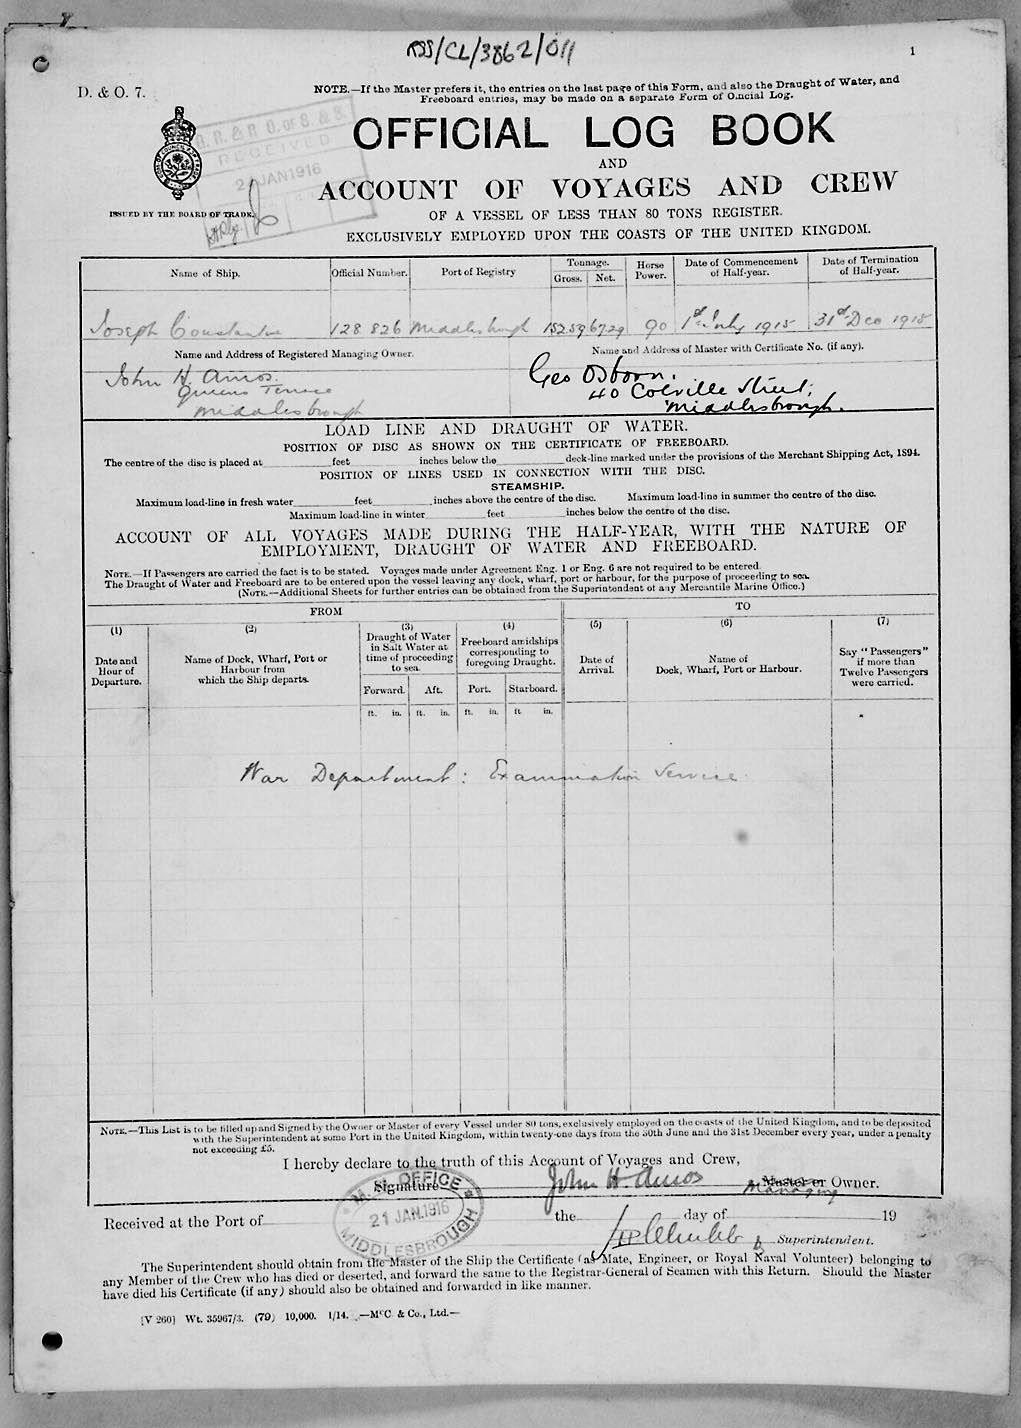 RSS/CL/3862/011
1
D. & O. 7.
NOTE.—If the Master prefers it, the entries on the last page of this Form, and also the Draught of Water, and
Freeboard entries, may be made on a separate Form of Official Log.
OFFICIAL LOG BOOK
AND
ACCOUNT OF VOYAGES AND CREW
OF A VESSEL OF LESS THAN 80 TONS REGISTER.
EXCLUSIVELY EMPLOYED UPON THE COASTS OF THE UNITED KINGDOM.
ISSUED BY THE BOARD OF TRADE.
RECEIVED
JAN 1916
Name of Ship. Official Number. Port of Registry Tonnage. Gross. Net. Horse Power. Date of Commencement of Half-year. Date of Termination of Half-year.
Joseph Constantine 128826 Middlesbrough 152.59 67.29 90 1st July 1915 31st Dec 1915
Name and Address of Registered Managing Owner.
John H. Amos.
Queens Terrace
Middlesbrough
Name and Address of Master with Certificate No. (if any).
Geo Osborn.
40 Colville Street,
Middlesbrough.
LOAD LINE AND DRAUGHT OF WATER.
POSITION OF DISC AS SHOWN ON THE CERTIFICATE OF FREEBOARD.
The centre of the disc is placed at feet inches below the deck-line marked under the provisions of the Merchant Shipping Act, 1894.
POSITION OF LINES USED IN CONNECTION WITH THE DISC.
STEAMSHIP.
Maximum load-line in fresh water feet inches above the centre of the disc. Maximum load-line in summer the centre of the disc.
Maximum load-line in winter feet inches below the centre of the disc.
ACCOUNT OF ALL VOYAGES MADE DURING THE HALF-YEAR, WITH THE NATURE OF
EMPLOYMENT, DRAUGHT OF WATER AND FREEBOARD.
NOTE.—If Passengers are carried the fact is to be stated. Voyages made under Agreement Eng. 1 or Eng. 6 are not required to be entered.
The Draught of Water and Freeboard are to be entered upon the vessel leaving any dock, wharf, port or harbour, for the purpose of proceeding to sea.
(NOTE.—Additional Sheets for further entries can be obtained from the Superintendent of any Mercantile Marine Office.)
FROM
TO
(1)
Date and
Hour of
Departure.
(2)
Name of Dock, Wharf, Port or
Harbour from
which the Ship departs.
(3)
Draught of Water
in Salt Water at
time of proceeding
to sea.
Forward. Aft.
(4)
Freeboard amidships
corresponding to
foregoing Draught.
Port. Starboard.
(5)
Date of
Arrival.
(6)
Name of
Dock, Wharf, Port or Harbour.
(7)
Say "Passengers"
if more than
Twelve Passengers
were carried.
ft. in. ft. in. ft. in. ft. in.
War Department: Examination Service
NOTE.—This List is to be filled up and Signed by the Owner or Master of every Vessel under 80 tons, exclusively employed on the coasts of the United Kingdom, and to be deposited
with the Superintendent at some Port in the United Kingdom, within twenty-one days from the 30th June and the 31st December every year, under a penalty
not exceeding £5.
I hereby declare to the truth of this Account of Voyages and Crew,
Signature John H Amos Master or Owner.
Managing
OFFICE
21 JAN. 1916
MIDDLESBROUGH
Received at the Port of the day of 19
Superintendent.
The Superintendent should obtain from the Master of the Ship the Certificate (as Mate, Engineer, or Royal Naval Volunteer) belonging to
any Member of the Crew who has died or deserted, and forward the same to the Registrar-General of Seamen with this Return. Should the Master
have died his Certificate (if any) should also be obtained and forwarded in like manner.
[V 260] Wt. 35967/3. (79) 10,000. 1/14. —McC. & Co., Ltd.—